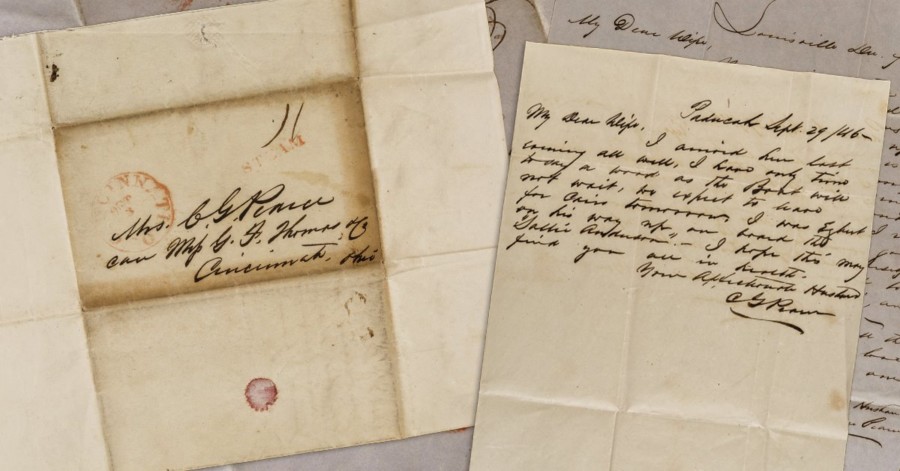 11
STEAM
CINNATI
Mrs. C. G. Pearce
care G. F. Thomas & Co
Cincinnati, Ohio
Louisville
My Dear Wife,
Paducah Sept. 29/46-
My Dear Wife,
I arrived here last
evening all well, I have only time
to say a word as the Boat will
not wait, we expect to leave
for Cairo tomorrow I was
on his way up, on board the
Sallie Anderson. — I hope this may
find you all in health.
Your Affectionate Husband
C G Pearce